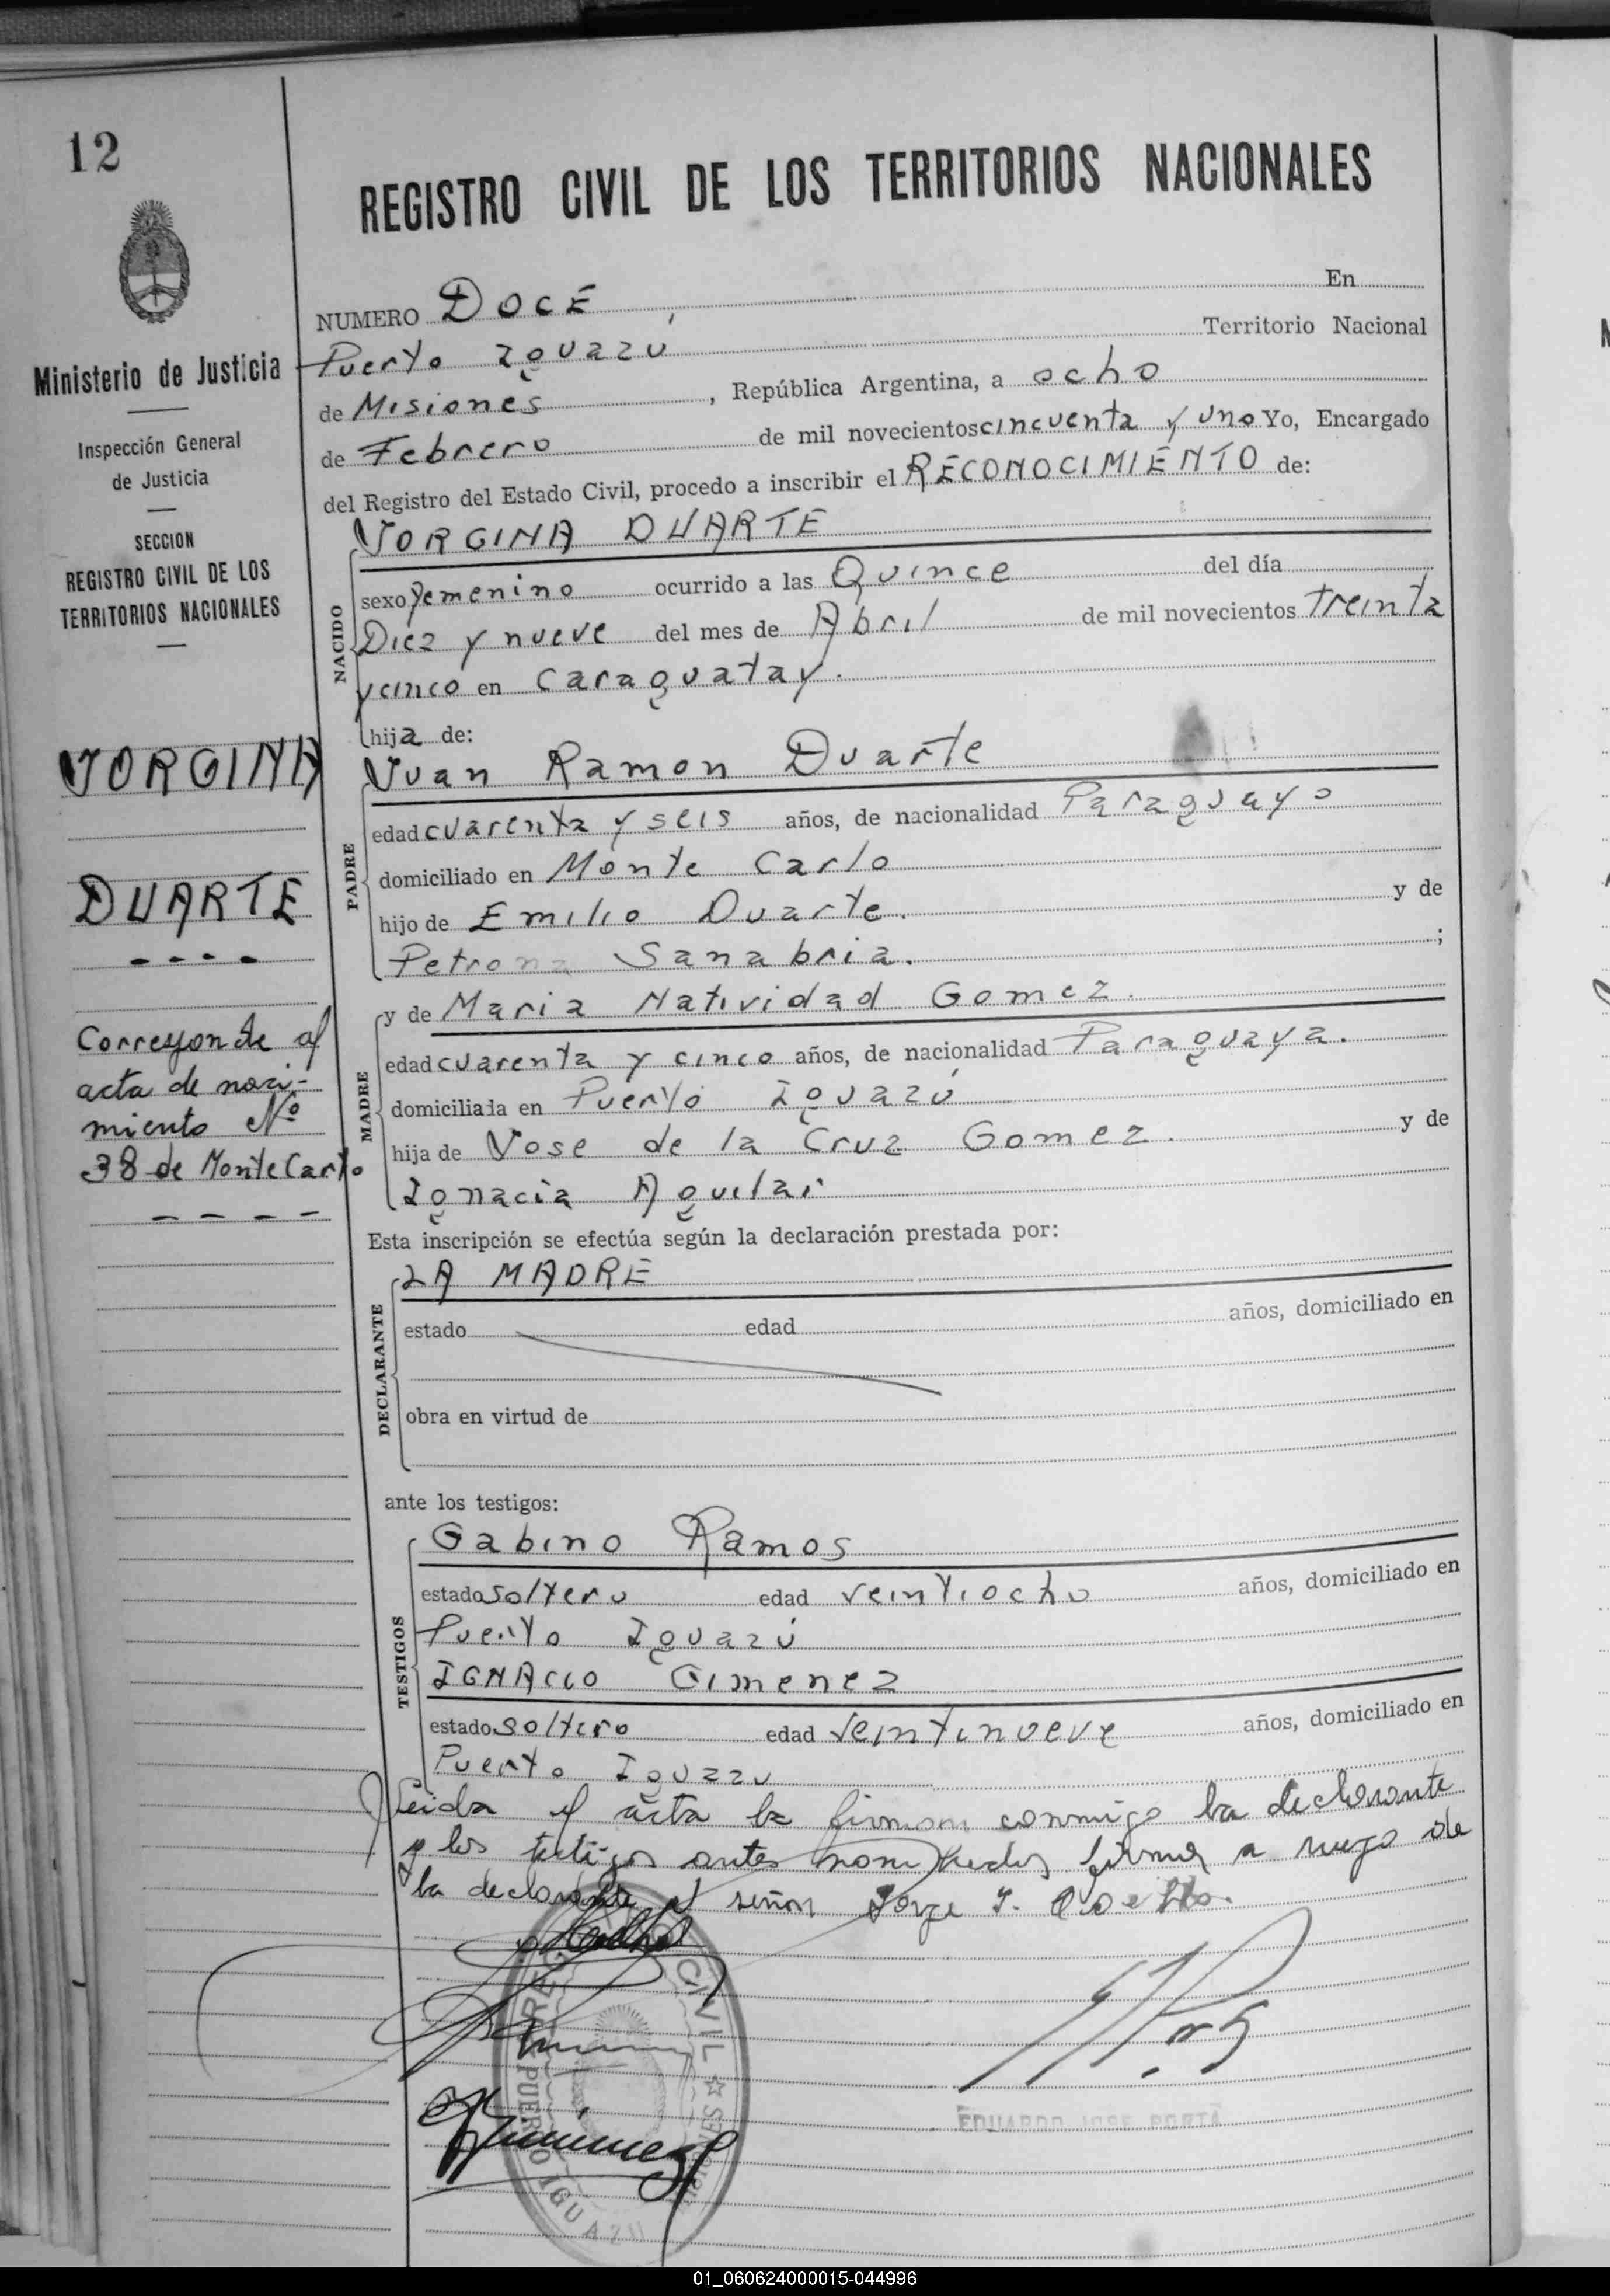 12
REGISTRO CIVIL DE LOS TERRITORIOS NACIONALES
Ministerio de Justicia
Inspección General
de Justicia
SECCION
REGISTRO CIVIL DE LOS
TERRITORIOS NACIONALES
JORGINA
DUARTE
Corresponde al
acta de naci-
miento Nº
38 de Monte Carlo
NUMERO DOCE En
Puerto Iguazú Territorio Nacional
de Misiones, República Argentina, a ocho
de Febrero de mil novecientos cincuenta y uno Yo, Encargado
del Registro del Estado Civil, procedo a inscribir el RECONOCIMIENTO de:
JORGINA DUARTE
NACIDO
sexo femenino ocurrido a las Quince del día
Diez y nueve del mes de Abril de mil novecientos treinta
y cinco en Caraguatay.
hija de:
Juan Ramon Duarte
PADRE
edad cuarenta y seis años, de nacionalidad Paraguayo
domiciliado en Monte Carlo
hijo de Emilio Duarte. y de
Petrona Sanabria. ;
y de Maria Natividad Gomez.
MADRE
edad cuarenta y cinco años, de nacionalidad Paraguaya.
domiciliada en Puerto Iguazú
hija de Jose de la Cruz Gomez. y de
Ignacia Aguilar
Esta inscripción se efectúa según la declaración prestada por:
LA MADRE
DECLARANTE
estado edad años, domiciliado en
obra en virtud de
ante los testigos:
Gabino Ramos
TESTIGOS
estado soltero edad veintiocho años, domiciliado en
Puerto Iguazú
IGNACIO Gimenez
estado soltero edad veintinueve años, domiciliado en
Puerto Iguazu
Leida el acta la firman conmigo la declarante
y los testigos antes nombrados firma a ruego de
la declarante el señor Jorge
REGISTRO CIVIL
PUERTO IGUAZU
EDUARDO JOSE PORTA
01_060624000015-044996